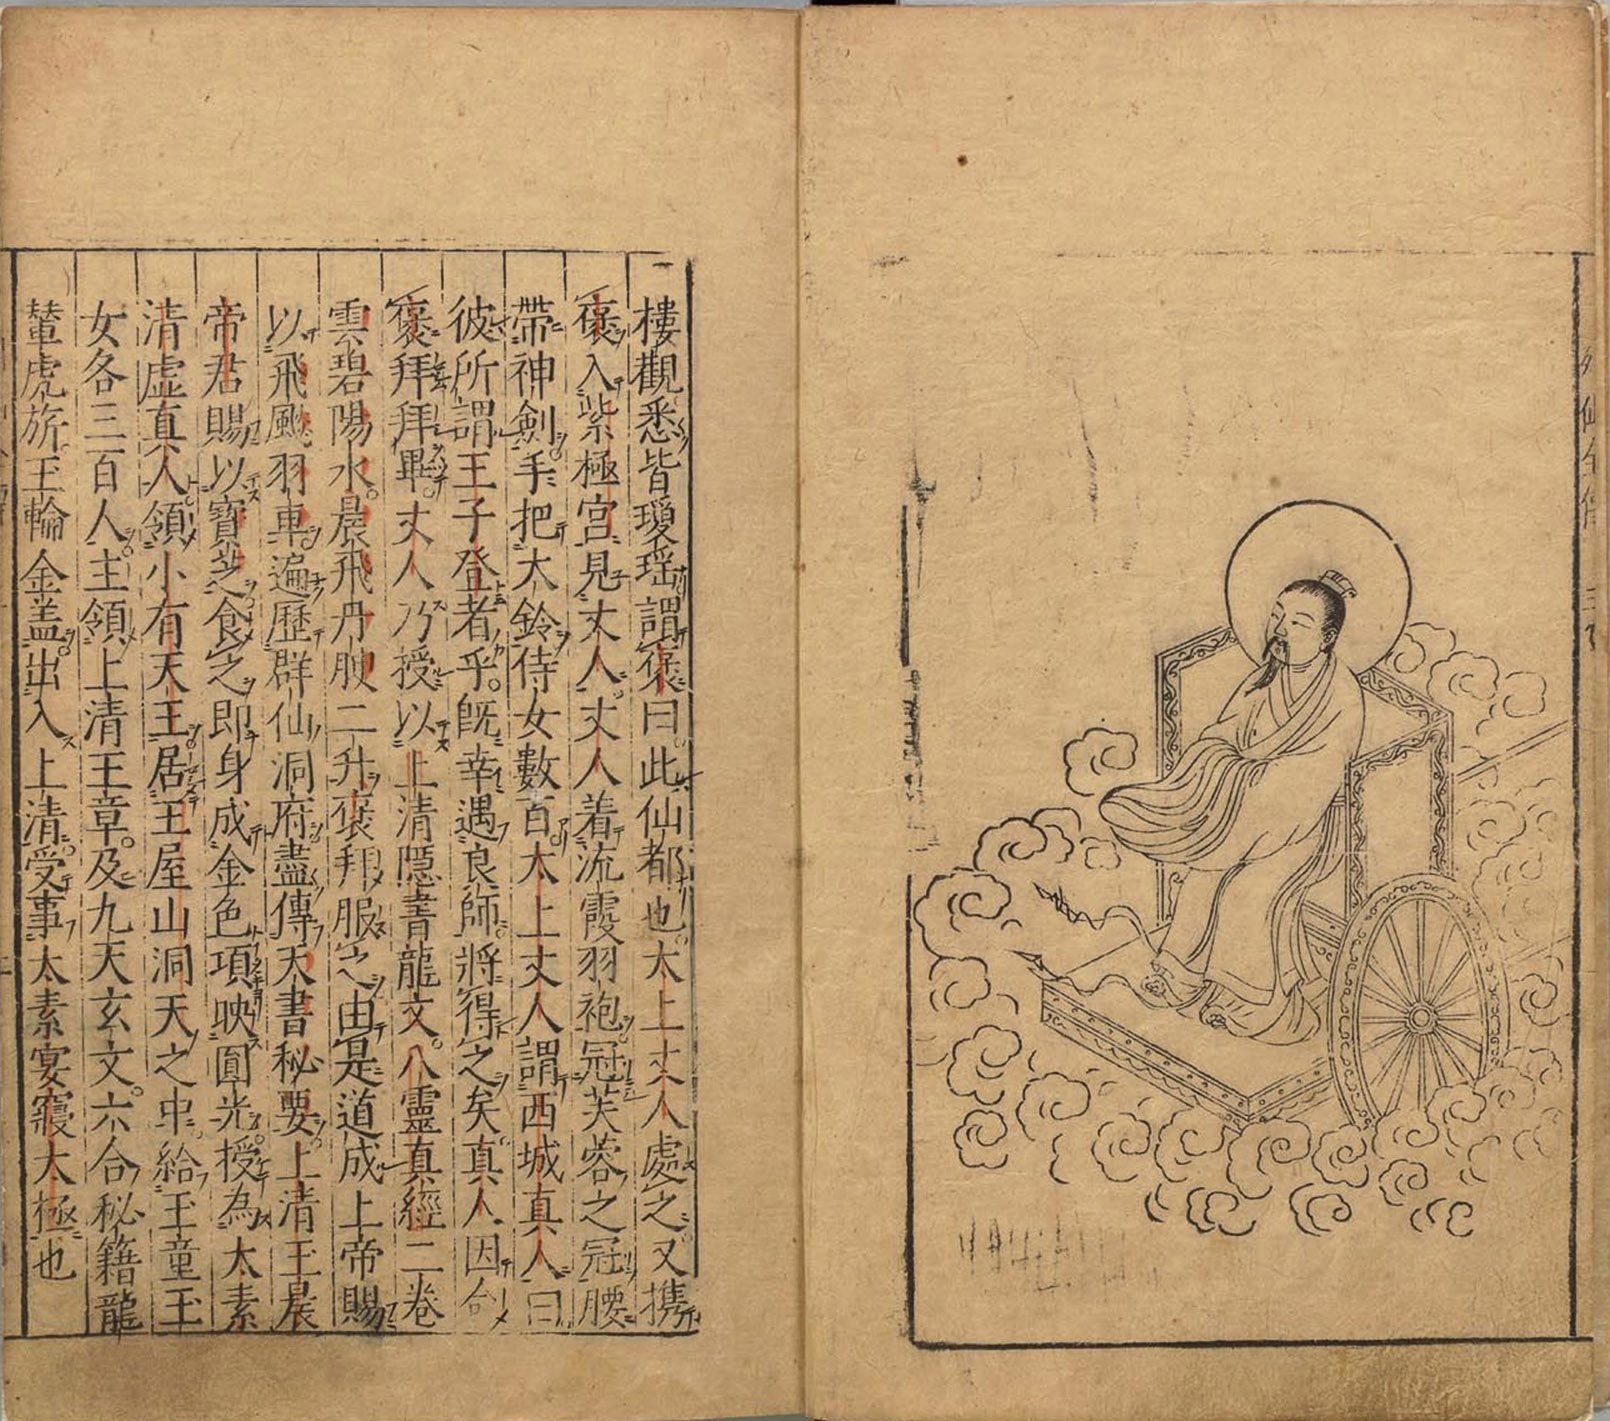 列仙全傳 三卷
樓觀悉皆瓊瑶謂褒曰此仙都也太上丈人處之又携
褒入紫極宮見丈人丈人着流霞羽袍冠芙蓉之冠腰
帶神劍手把大鈴侍女數百太上丈人謂西城真人曰
彼所謂王子登者乎既幸遇良師將得之矣真人因命
褒拜拜畢丈人乃授以上清隱書龍文八靈真經二卷
雲碧陽水晨飛丹腴二升褒拜服之由是道成上帝賜
以飛颷羽車遍歷群仙洞府盡傳天書秘要上清王晨
帝君賜以寶芝食之即身成金色項映圓光授為太素
清虛真人領小有天王居王屋山洞天之中給玉童玉
女各三百人主領上清王章及九天玄文六合秘籍龍
輦虎旂玉輪金盖出入上清受事太素宴寢太極也